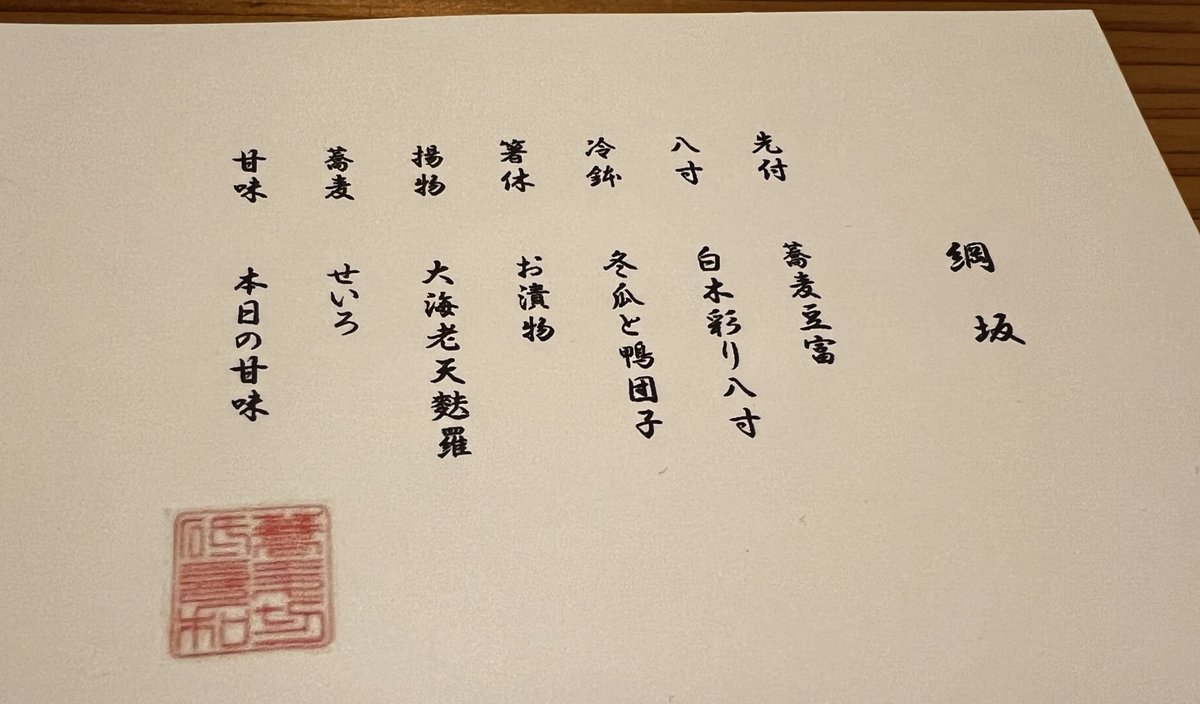 綱坂
先付 蕎麦豆富
八寸 白木彩り八寸
冷鉢 冬瓜と鴨団子
箸休 お漬物
揚物 大海老天麩羅
蕎麦 せいろ
甘味 本日の甘味